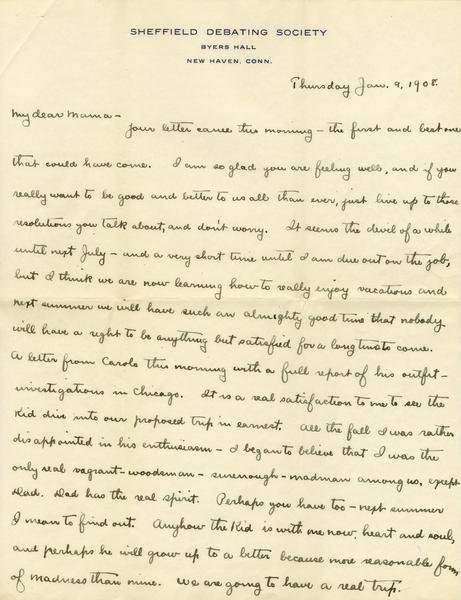 SHEFFIELD DEBATING SOCIETY
BYERS HALL
NEW HAVEN, CONN.
Thursday Jan. 9, 1908.
My dear Mama –
Your letter came this morning – the first and best one
that could have come. I am so glad you are feeling well, and if you
really want to be good and better to us all than ever, just live up to those
resolutions you talk about, and don't worry. It seems the devil of a while
until next July – and a very short time until I am due out on the job,
but I think we are now learning how to really enjoy vacations and
next summer we will have such an almighty good time that nobody
will have a right to be anything but satisfied for a long time to come.
A letter from Carol this morning with a full report of his outfit –
investigations in Chicago. It is a real satisfaction to me to see the
Kid dive into our proposed trip in earnest. All the fall I was rather
disappointed in his enthusiasm – I began to believe that I was the
only real vagrant – woodsman – surenough – madman among us, except
Dad. Dad has the real spirit. Perhaps you have too – next summer
I mean to find out. Anyhow the Kid is with me now, heart and soul,
and perhaps he will grow up to a better because more reasonable form
of madness than mine. We are going to have a real trip.